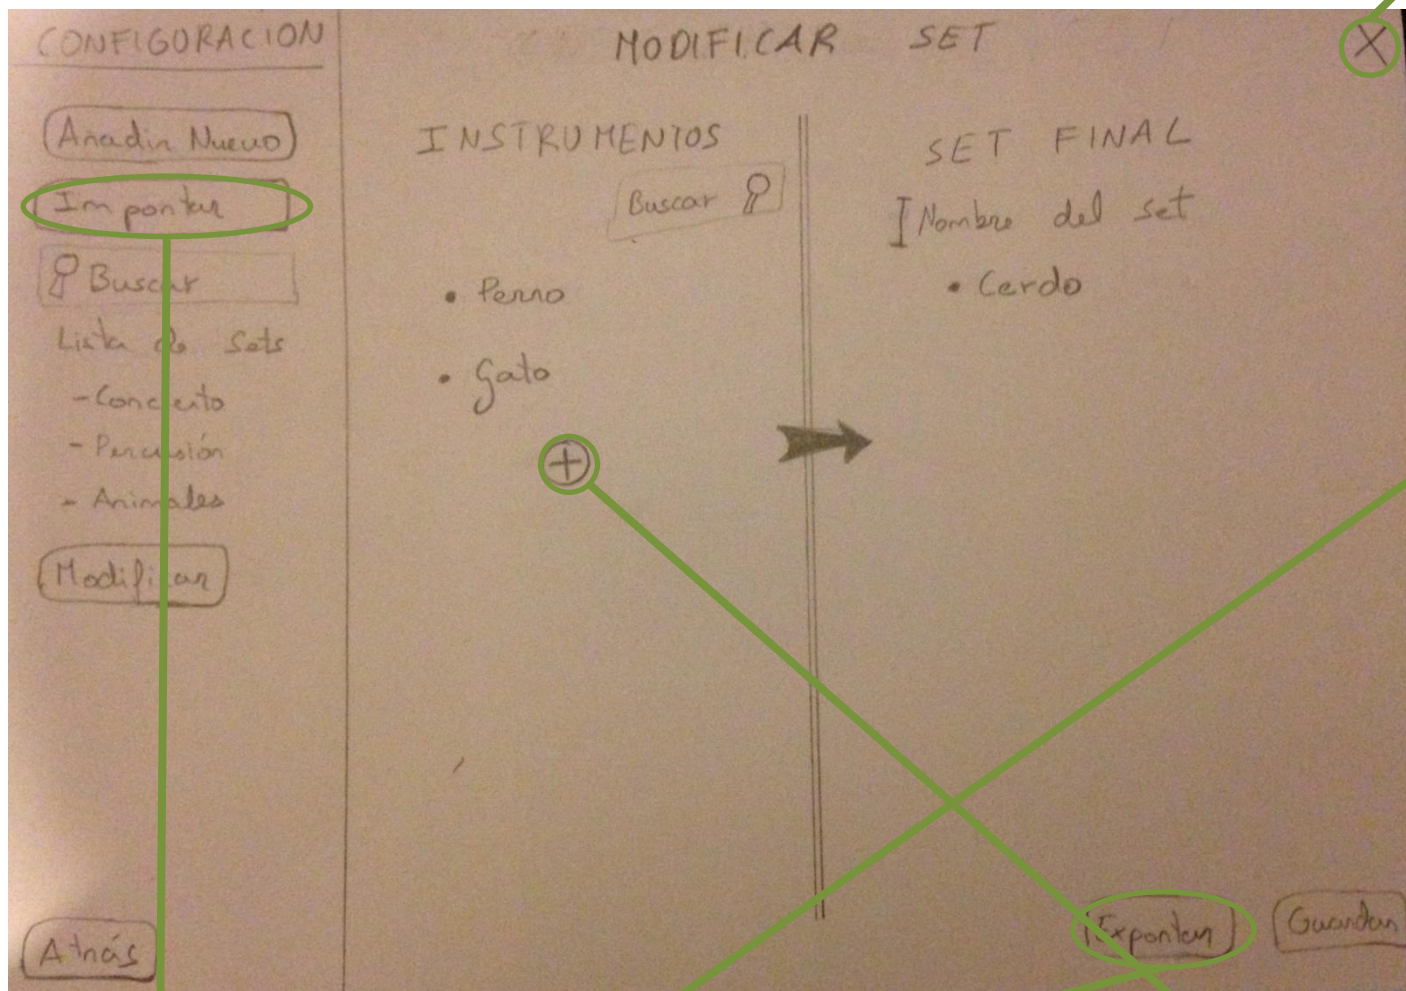 CONFIGURACION
Añadir Nuevo
Importar
Buscar
Lista de Sets
- Concierto
- Percusión
- Animales
Modificar
Atrás
MODIFICAR SET
X
INSTRUMENTOS
Buscar
• Perro
• Gato
+
SET FINAL
Nombre del set
• Cerdo
Exportar
Guardar